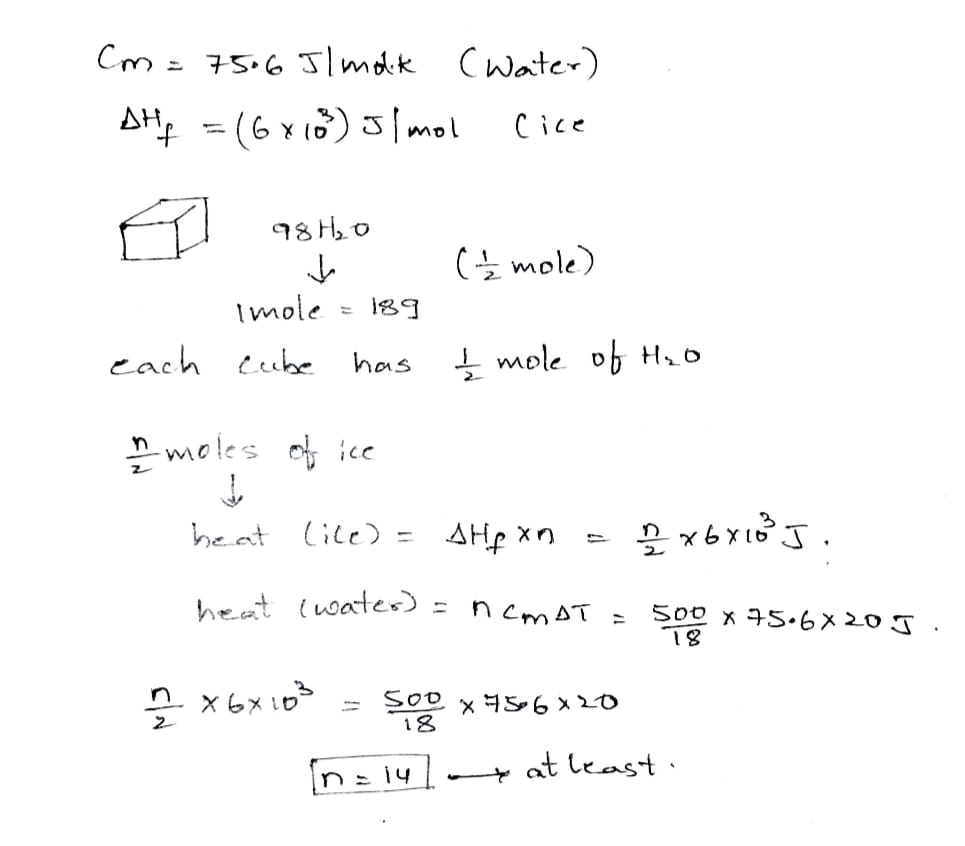 Cm = 75.6 J/mol.k (Water)
ΔHf = (6 × 10³) J/mol (ice
98 H₂O
↓ (½ mole)
1mole = 18g
each cube has ½ mole of H₂O
n/2 moles of ice
↓
heat (ice) = ΔHf × n = n/2 × 6 × 10³ J.
heat (water) = n Cm ΔT = 500/18 × 75.6 × 20 J.
n/2 × 6 × 10³ = 500/18 × 75.6 × 20
n = 14 → at least.